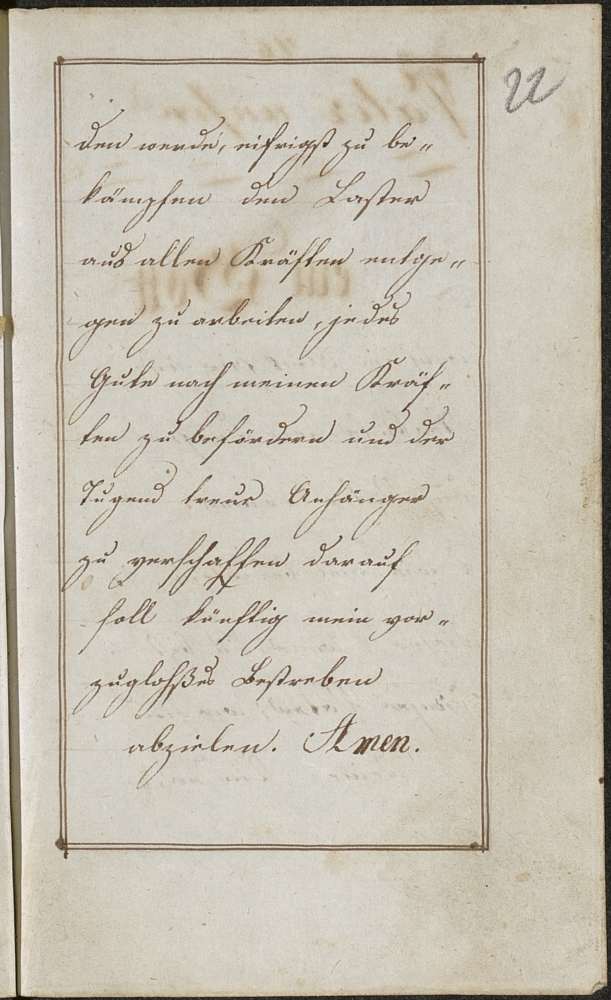 22
den werde, eifrigst zu be„
kämpfen den Laster
aus allen Kräften entge„
gen zu arbeiten, jedes
Gute nach meinen Kräf„
ten zu befördern und der
Tugend treue Anhänger
zu verschaffen darauf
soll künftig mein vor„
Bestreben
abzielen. Amen.